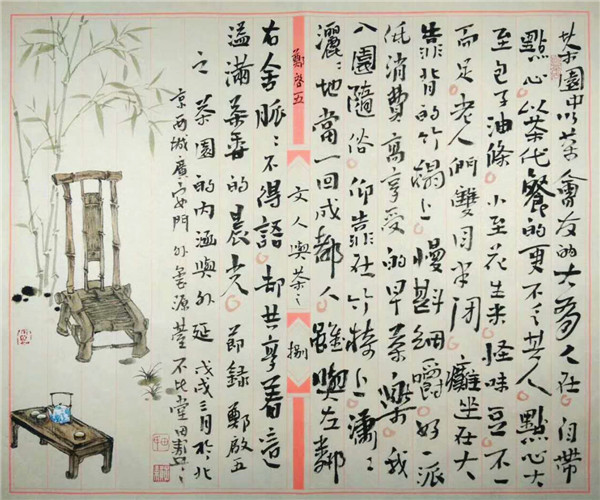 茶園中以茶會友的大有人在自帶
點心以茶代餐的更不乏其人點心大
至包子油條小至花生米怪味豆不一
而足老人們雙目半闭癱坐在大
靠背的竹榻上慢斟細嚼好一派
低消費高享受的早茶樂我
入園隨俗仰靠在竹椅上瀟〻
灑〻地當一回成都人雖與左鄰
鄭啟五
文人與茶之
捌
右舍脈〻不得語却共享着這
溢滿茶香的晨光 節錄鄭啟五
之茶園的内涵與外延 戊戌三月於北
京西城廣安門外 源 不比堂田